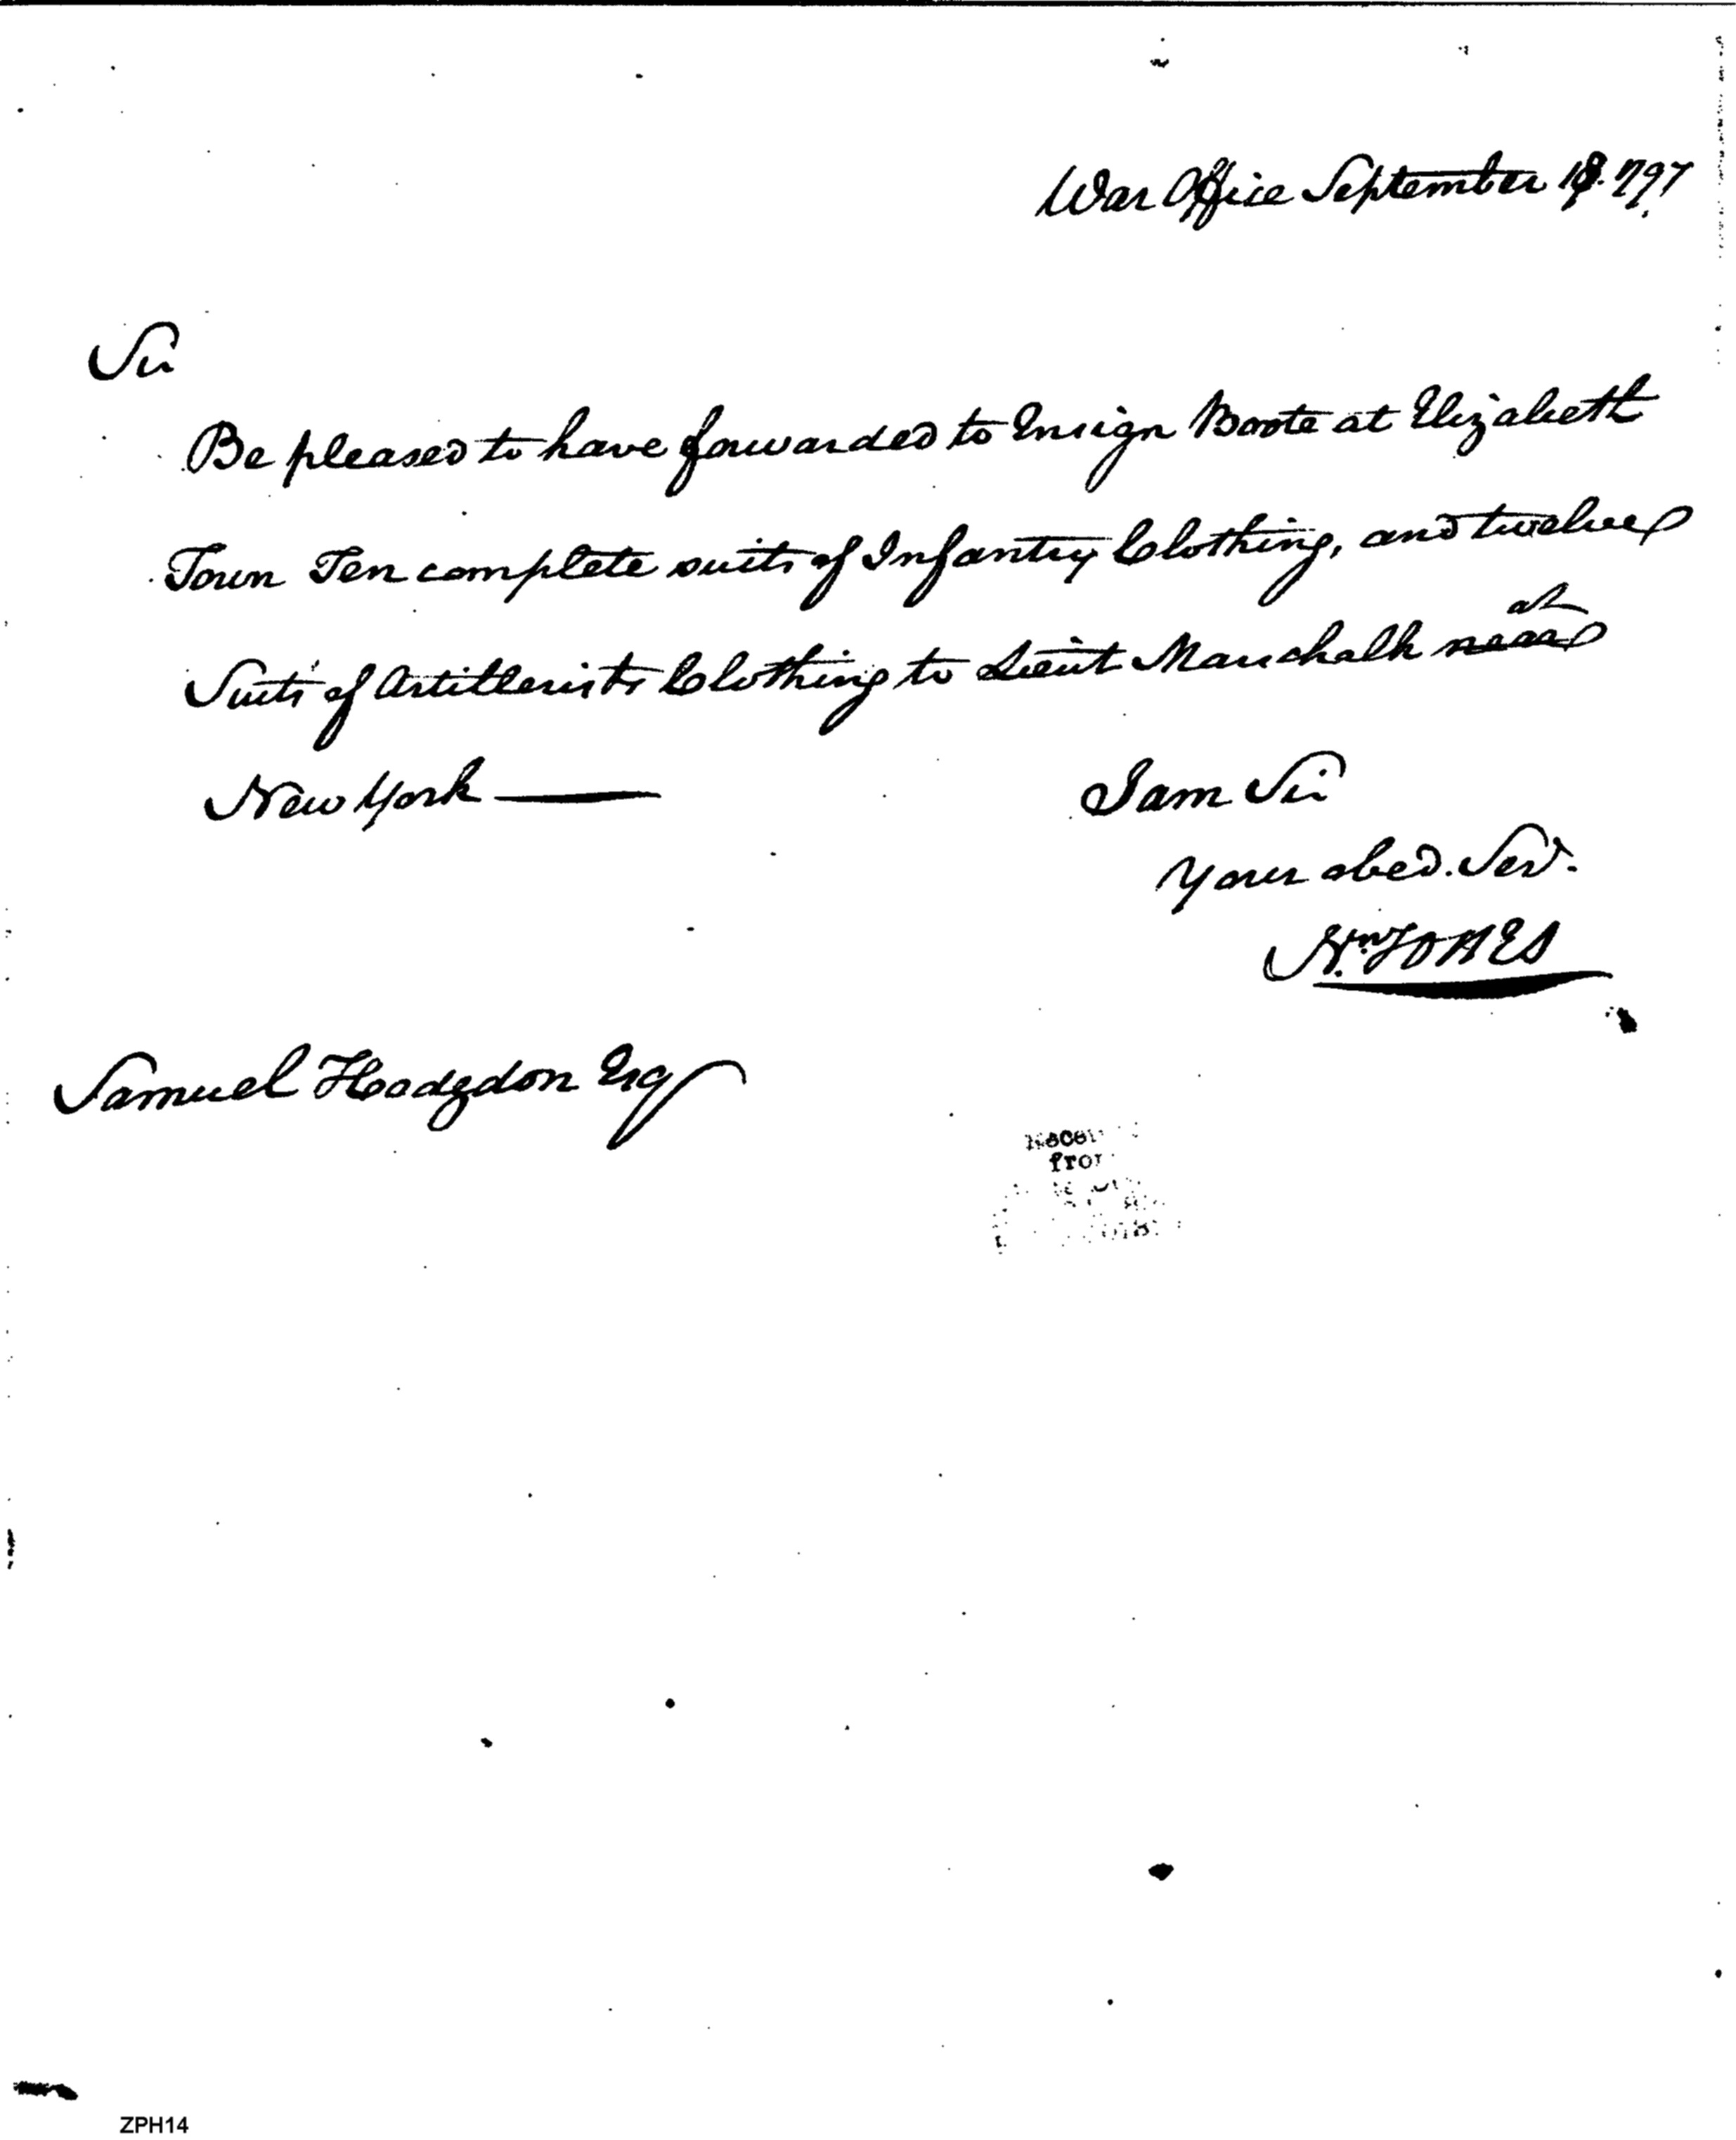 War Office September 18. 1797
Sir
Be pleased to have forwarded to Ensign Boote at Elizabeth
Town Ten complete suits of Infantry Clothing, and twelve
at
Suits of Artillerists Clothing to Lieut Marschalk near
New York —
I am Sir
Your obed. Serv.
Wm JONES
Samuel Hodgdon Esq
from
ZPH14